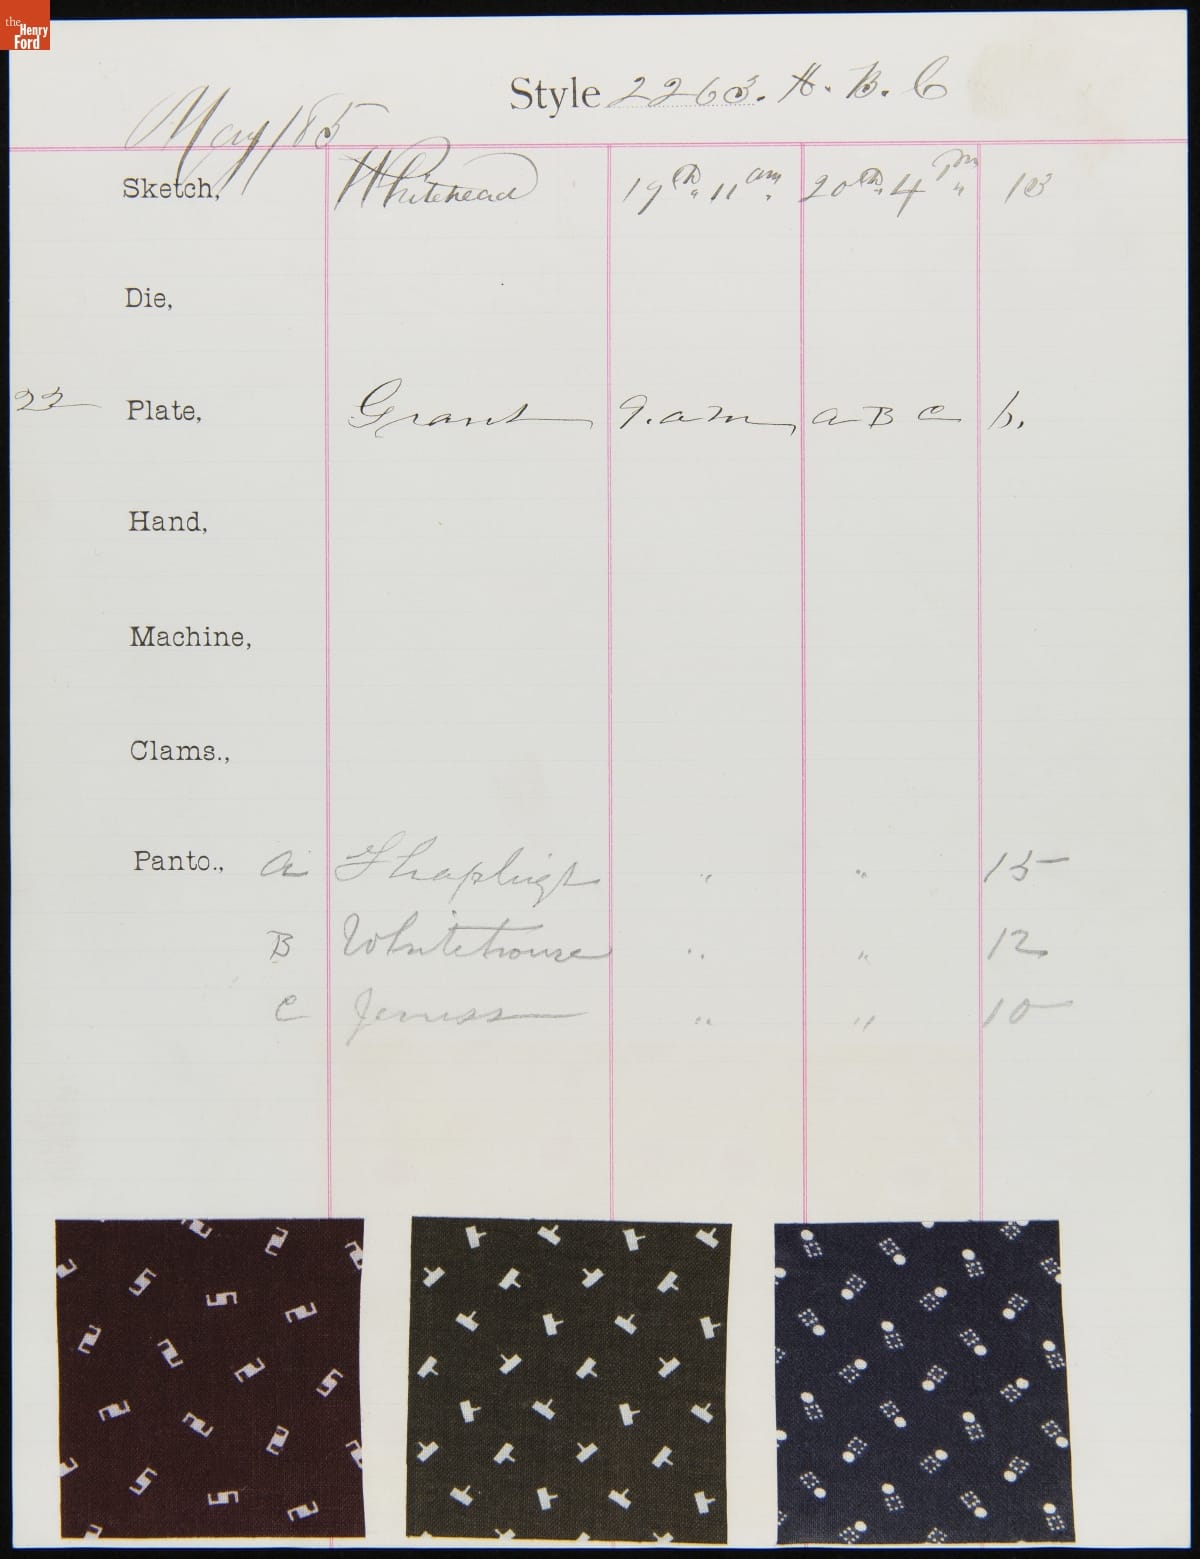 the Henry Ford
Style 2263. A. B. C
May/85
Sketch, Whitehead 19th 11 am 20th 4 pm 13
Die,
22 Plate, Grant 9. am A B C 6.
Hand,
Machine,
Clams.,
Panto., A Shapleigh " " 15
B Whitehouse " " 12
C Jenness " " 10